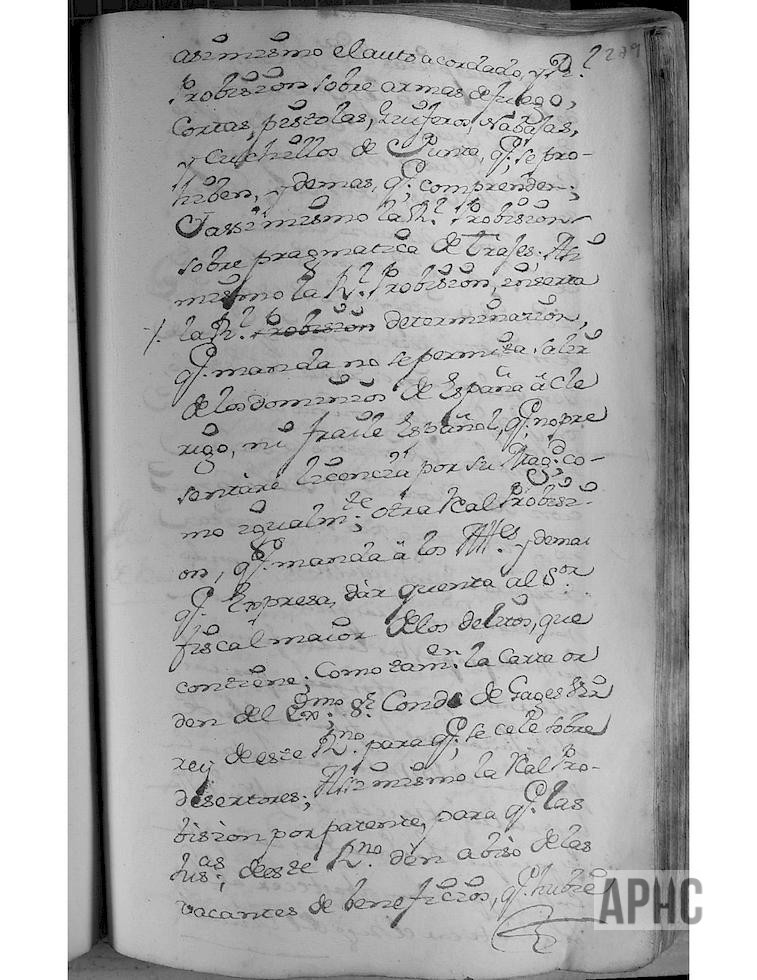 279
assimismo el auto acordado, y Rl.
Probision sobre armas de fuego,
cortas, pistolas, Rejferos, Nabajas,
y Cuchillos de Punta, q. se pro-
hiben, y demas, q. comprenden;
Y assimismo la Rl. Probision
sobre pragmatica de Trajes. Assi
mismo la Rl. Probision, inserta
/. la Rl. Probision determinazion,
q. manda no se permita salir
de los dominios de España â cle
rigo, ni fraile Español, q. no pre
sentare licencia por su Magd. co-
mo igualmte. otra Real Probisi-
on, q. manda â los y demas
q. Expresa, dàr quenta al Sor.
fiscal maior de los delitos, que
contiene; Como tamen. la Carta or
den del Exmo. Sr. Conde de Gages Vir
rey de este Rno. para q. se cele sobre
desertores; Assi mismo la Real Pro-
bision por patente, para q. las
Jusas. deeste Rno. den abiso de las
vacantes de beneficios, q. hubie
APHC